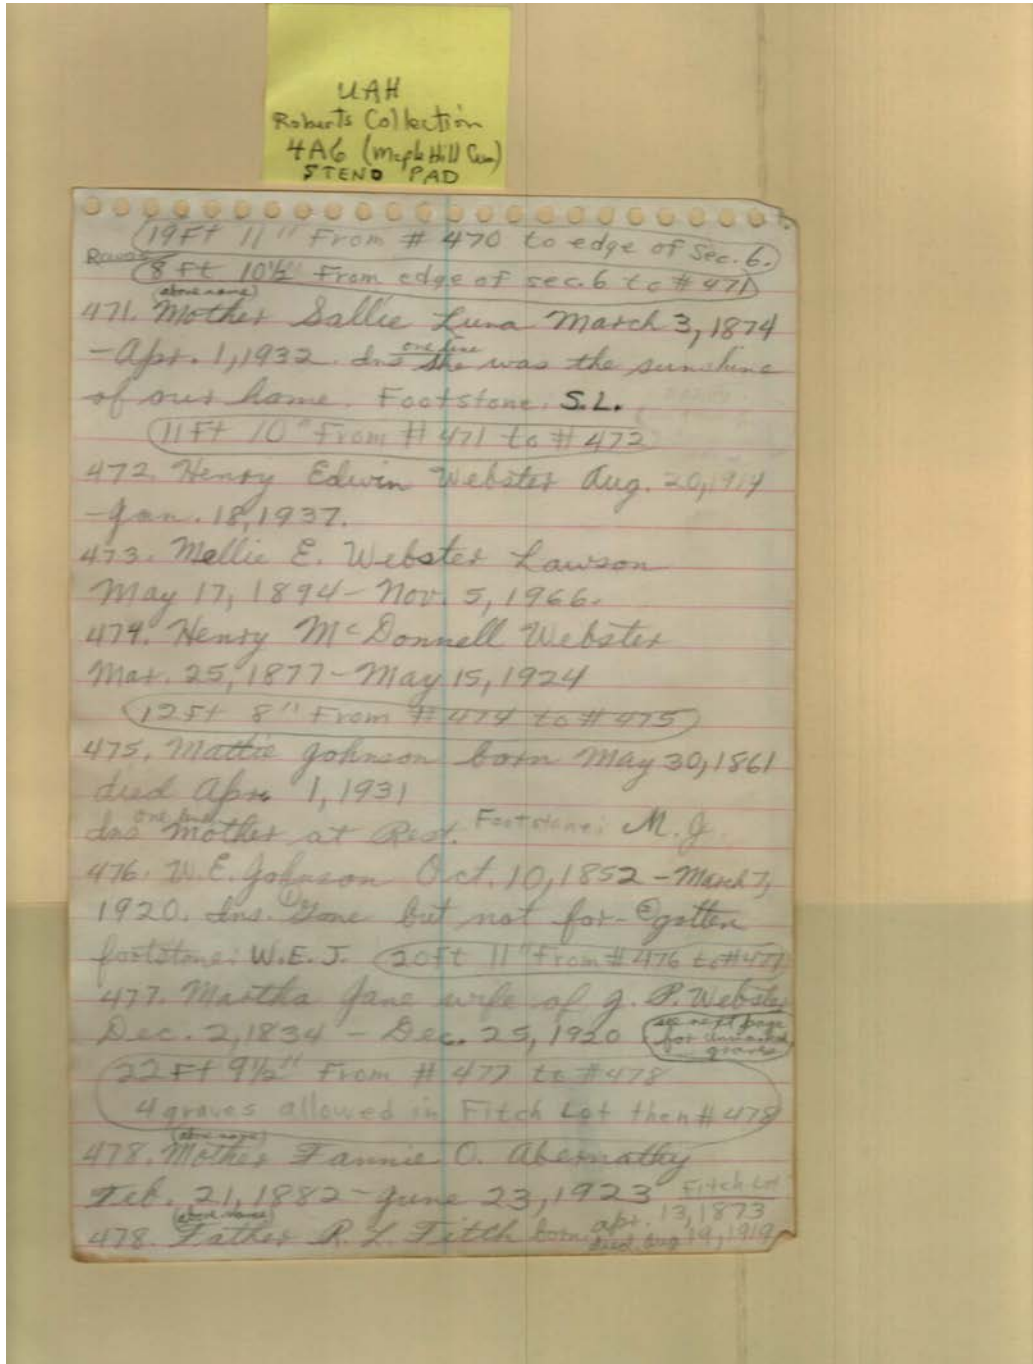 UAH
Roberts Collection
4A6 (Maple Hill Cem)
STENO PAD
19Ft 11" From # 470 to edge of Sec. 6.
8 Ft 10½" From edge of sec. 6 to # 471
(above name)
471. Mother Sallie Luna March 3, 1874
one line
- Apr. 1, 1932. Ins She was the sunshine
of our home. Footstone: S.L.
11 Ft 10" From # 471 to # 472
472. Henry Edwin Webster Aug. 20, 1914
- Jan. 18, 1937.
473. Mollie E. Webster Lawson
May 17, 1894 - Nov. 5, 1966.
474. Henry McDonnell Webster
Mar. 25, 1877 - May 15, 1924
12 Ft 8" From # 474 to # 475
475. Mattie Johnson born May 30, 1861
died Apr. 1, 1931
one line
Ins Mother at Rest. Footstone: M.J.
476. W.E. Johnson Oct. 10, 1852 - March 7,
1920. Ins. ① Gone but not for- ② gotten
footstone: W.E.J. 20 Ft 11" From # 476 to # 477
477. Martha Jane wife of J. P. Webster
Dec. 2, 1834 - Dec. 25, 1920 see next page
for unmarked
graves
22 Ft 9½" From # 477 to # 478
4 graves allowed in Fitch Lot then # 478
(above name)
478. Mother Fannie O. Abernathy
Feb. 21, 1882 - June 23, 1923 Fitch Lot
(above name)
478. Father R. L. Fitch born Apr. 13, 1873
died Aug 19, 1919